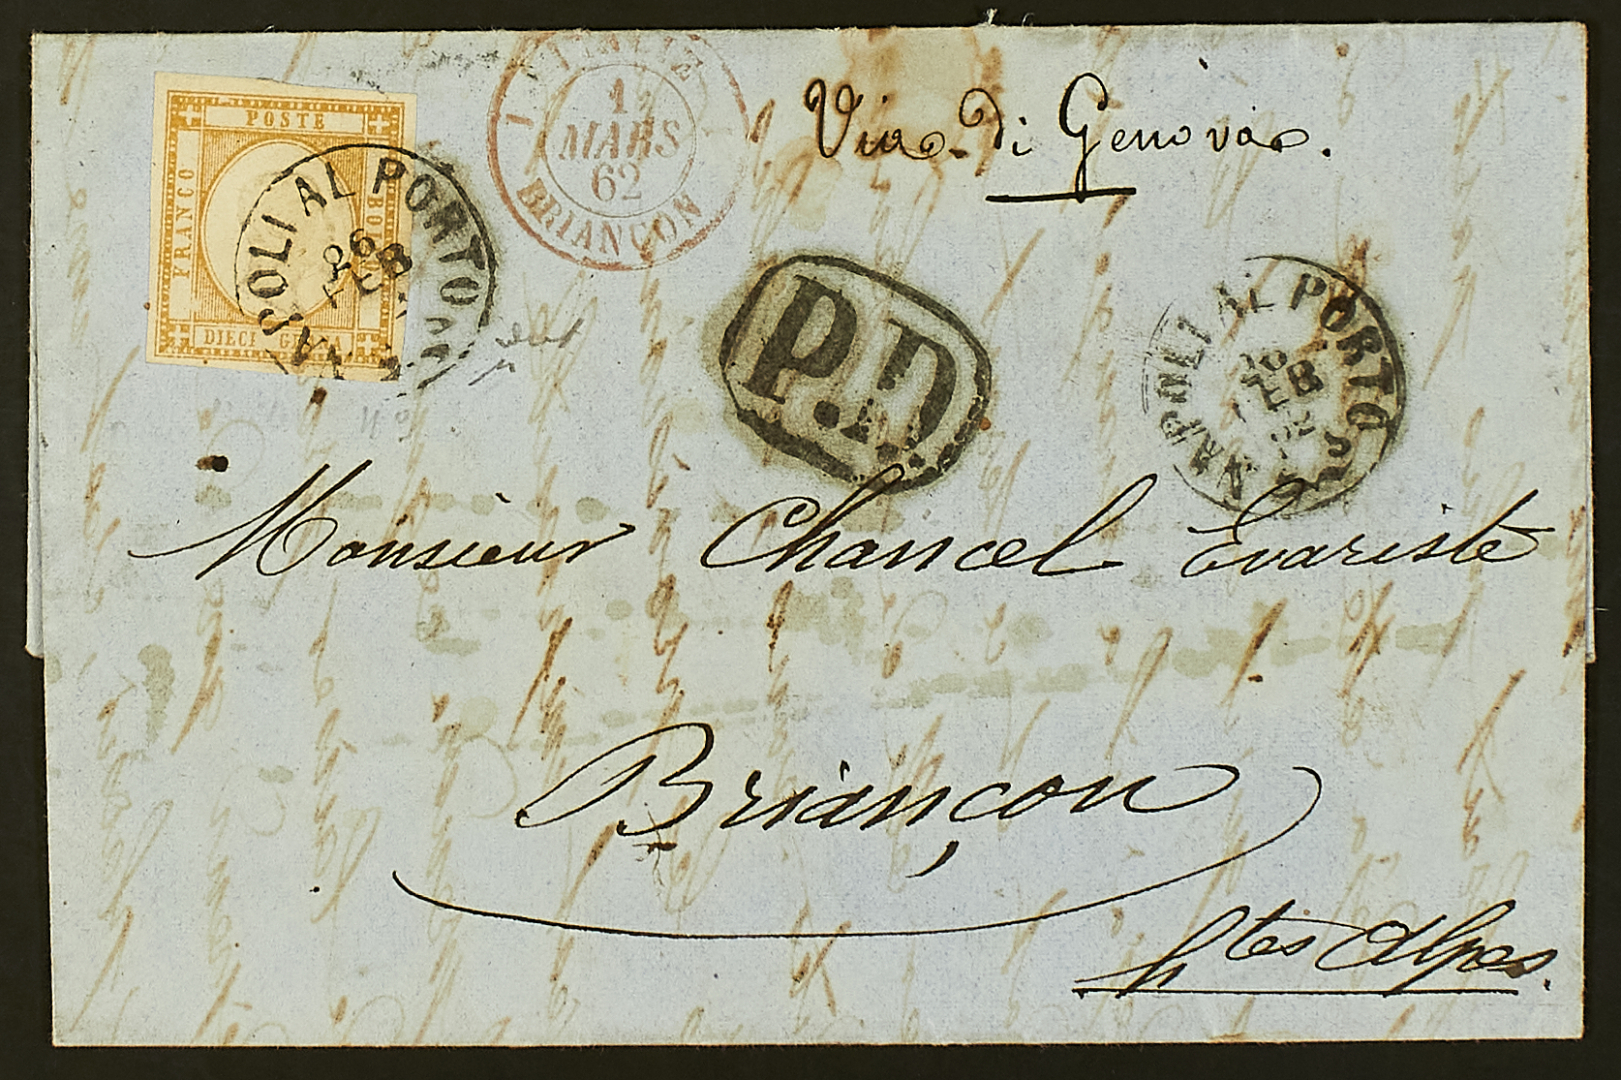 POSTE
FRANCO
BOLLO
DIECI GRANA
NAPOLI AL PORTO
26
FEB
ITALIE
1
MARS
62
BRIANÇON
Via di Genova.
P.D.
NAPOLI AL PORTO
26
FEB
62
Monsieur Chancel Evariste
Briançon
htes Alpes.